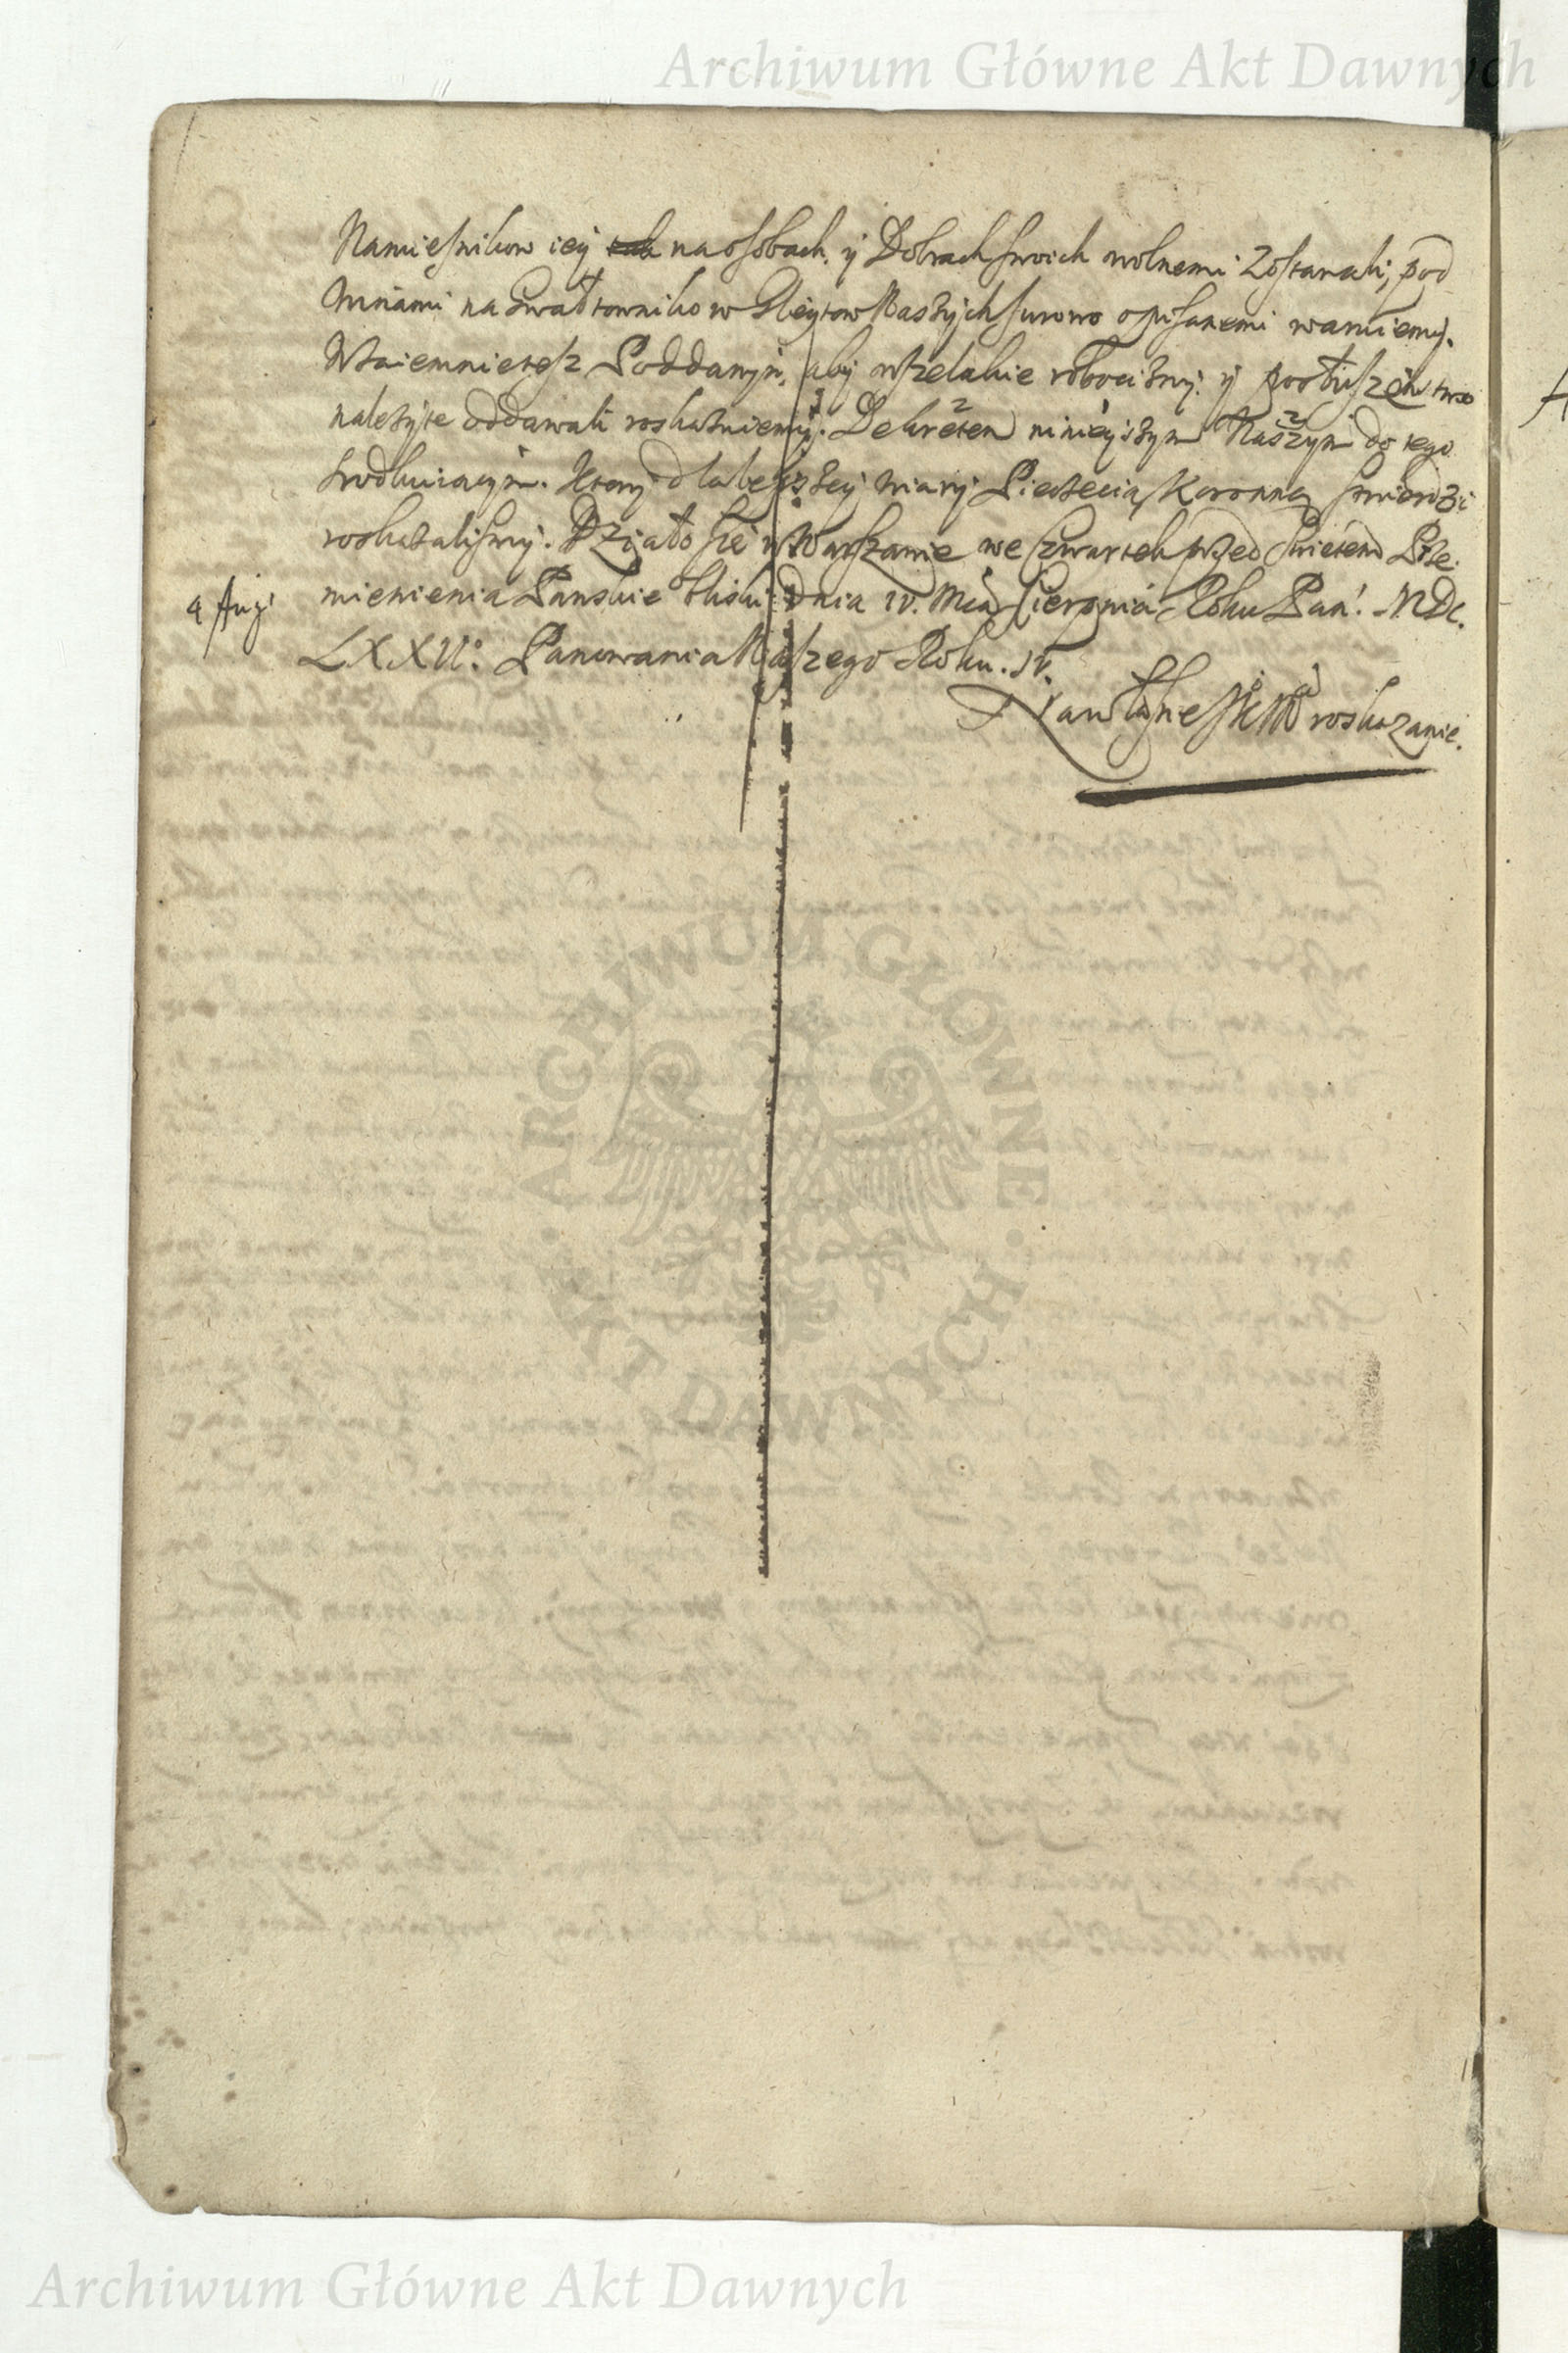 Archiwum Główne Akt Dawnych
Namiesnikow iey na osobach, y Dobrach swoich wolnemi zostawali; pod
winami na Gwałtownikow Gleytow Naszych surowo opisanemi waruiemy.
Wzaiemnie tesz Poddanym, aby wszelakie robocizny y posłuszenstwo
nalezyte oddawali roskazuiemy. Dekretem ninieyszym Naszym do tego
Ktory dla lepszey wiary Pieczecią Koronną stwierdzic
roskazalismy. Działo sie w Warszawie we Czwartek przed Swietem Prze-
mienienia Panskie bliski Dnia IV. Mca Sierpnia Roku Pan: MDC.
4 Augi
LXXII: Panowania Naszego Roku. IV.
Na własne JKM roskazanie.
ARCHIWUM GŁÓWNE
AKT DAWNYCH
Archiwum Główne Akt Dawnych